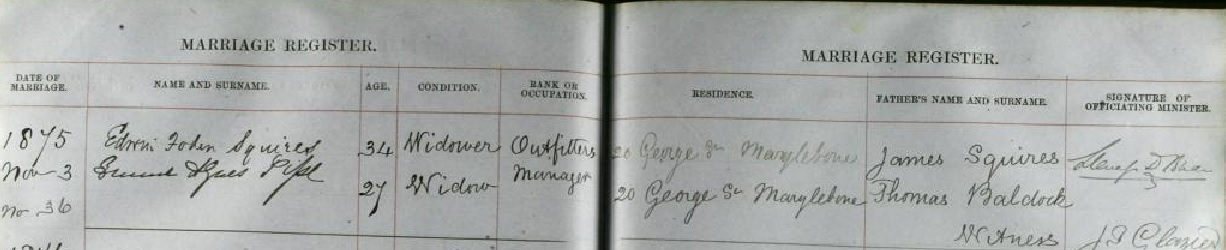 MARRIAGE REGISTER.
MARRIAGE REGISTER.
DATE OF MARRIAGE. NAME AND SURNAME. AGE. CONDITION. RANK OR OCCUPATION. RESIDENCE. FATHER'S NAME AND SURNAME. SIGNATURE OF OFFICIATING MINISTER.
1875 Edwin John Squires 34 Widower Outfitters 20 George St Marylebone James Squires
Nov 3 27 Widow Manager 20 George St Marylebone Thomas Baldock
No 36
Witness